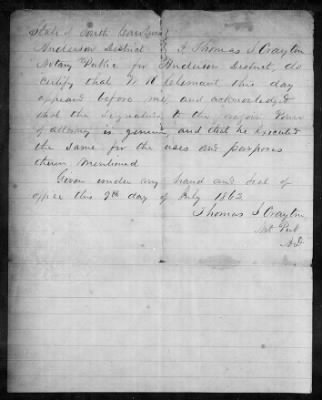 State of South Carolina
Anderson District } I Thomas S Crayton
Notary Public for Anderson District, do
certify that this day
appeared before me, and acknowledged
that the Signature to the foregoin Power
of attorney is genuin and that he executed
the same for the uses and purposes
therein mentioned
Given under my hand and seal of
office this 9th day of July 1862
Thomas S Crayton
Not Pub
A.D.